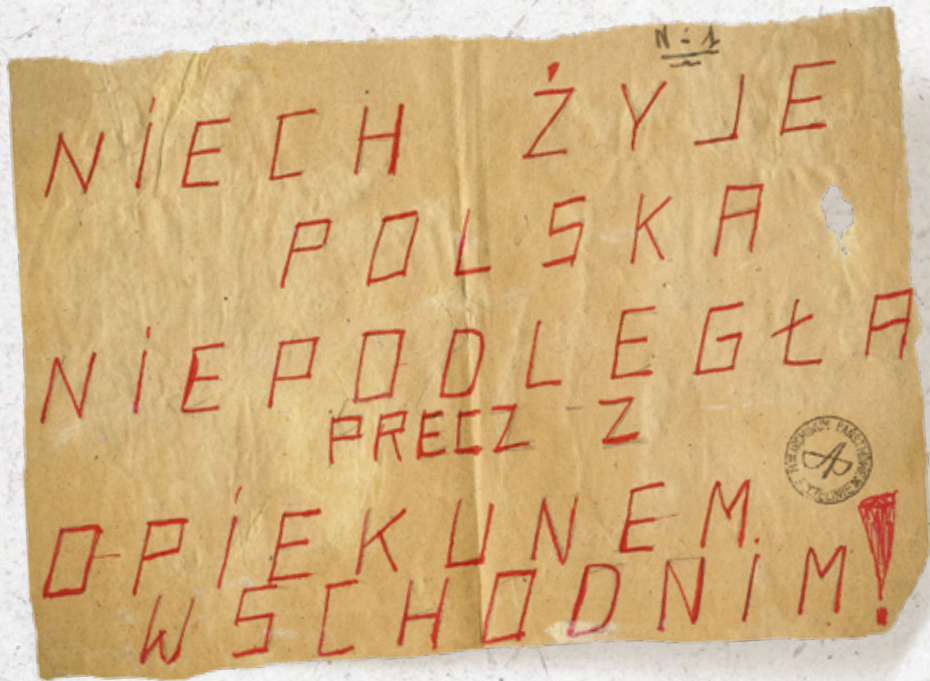 N-1
NIECH ŻYJE
POLSKA
NIEPODLEGŁA
PRECZ Z
OPIEKUNEM
WSCHODNIM!